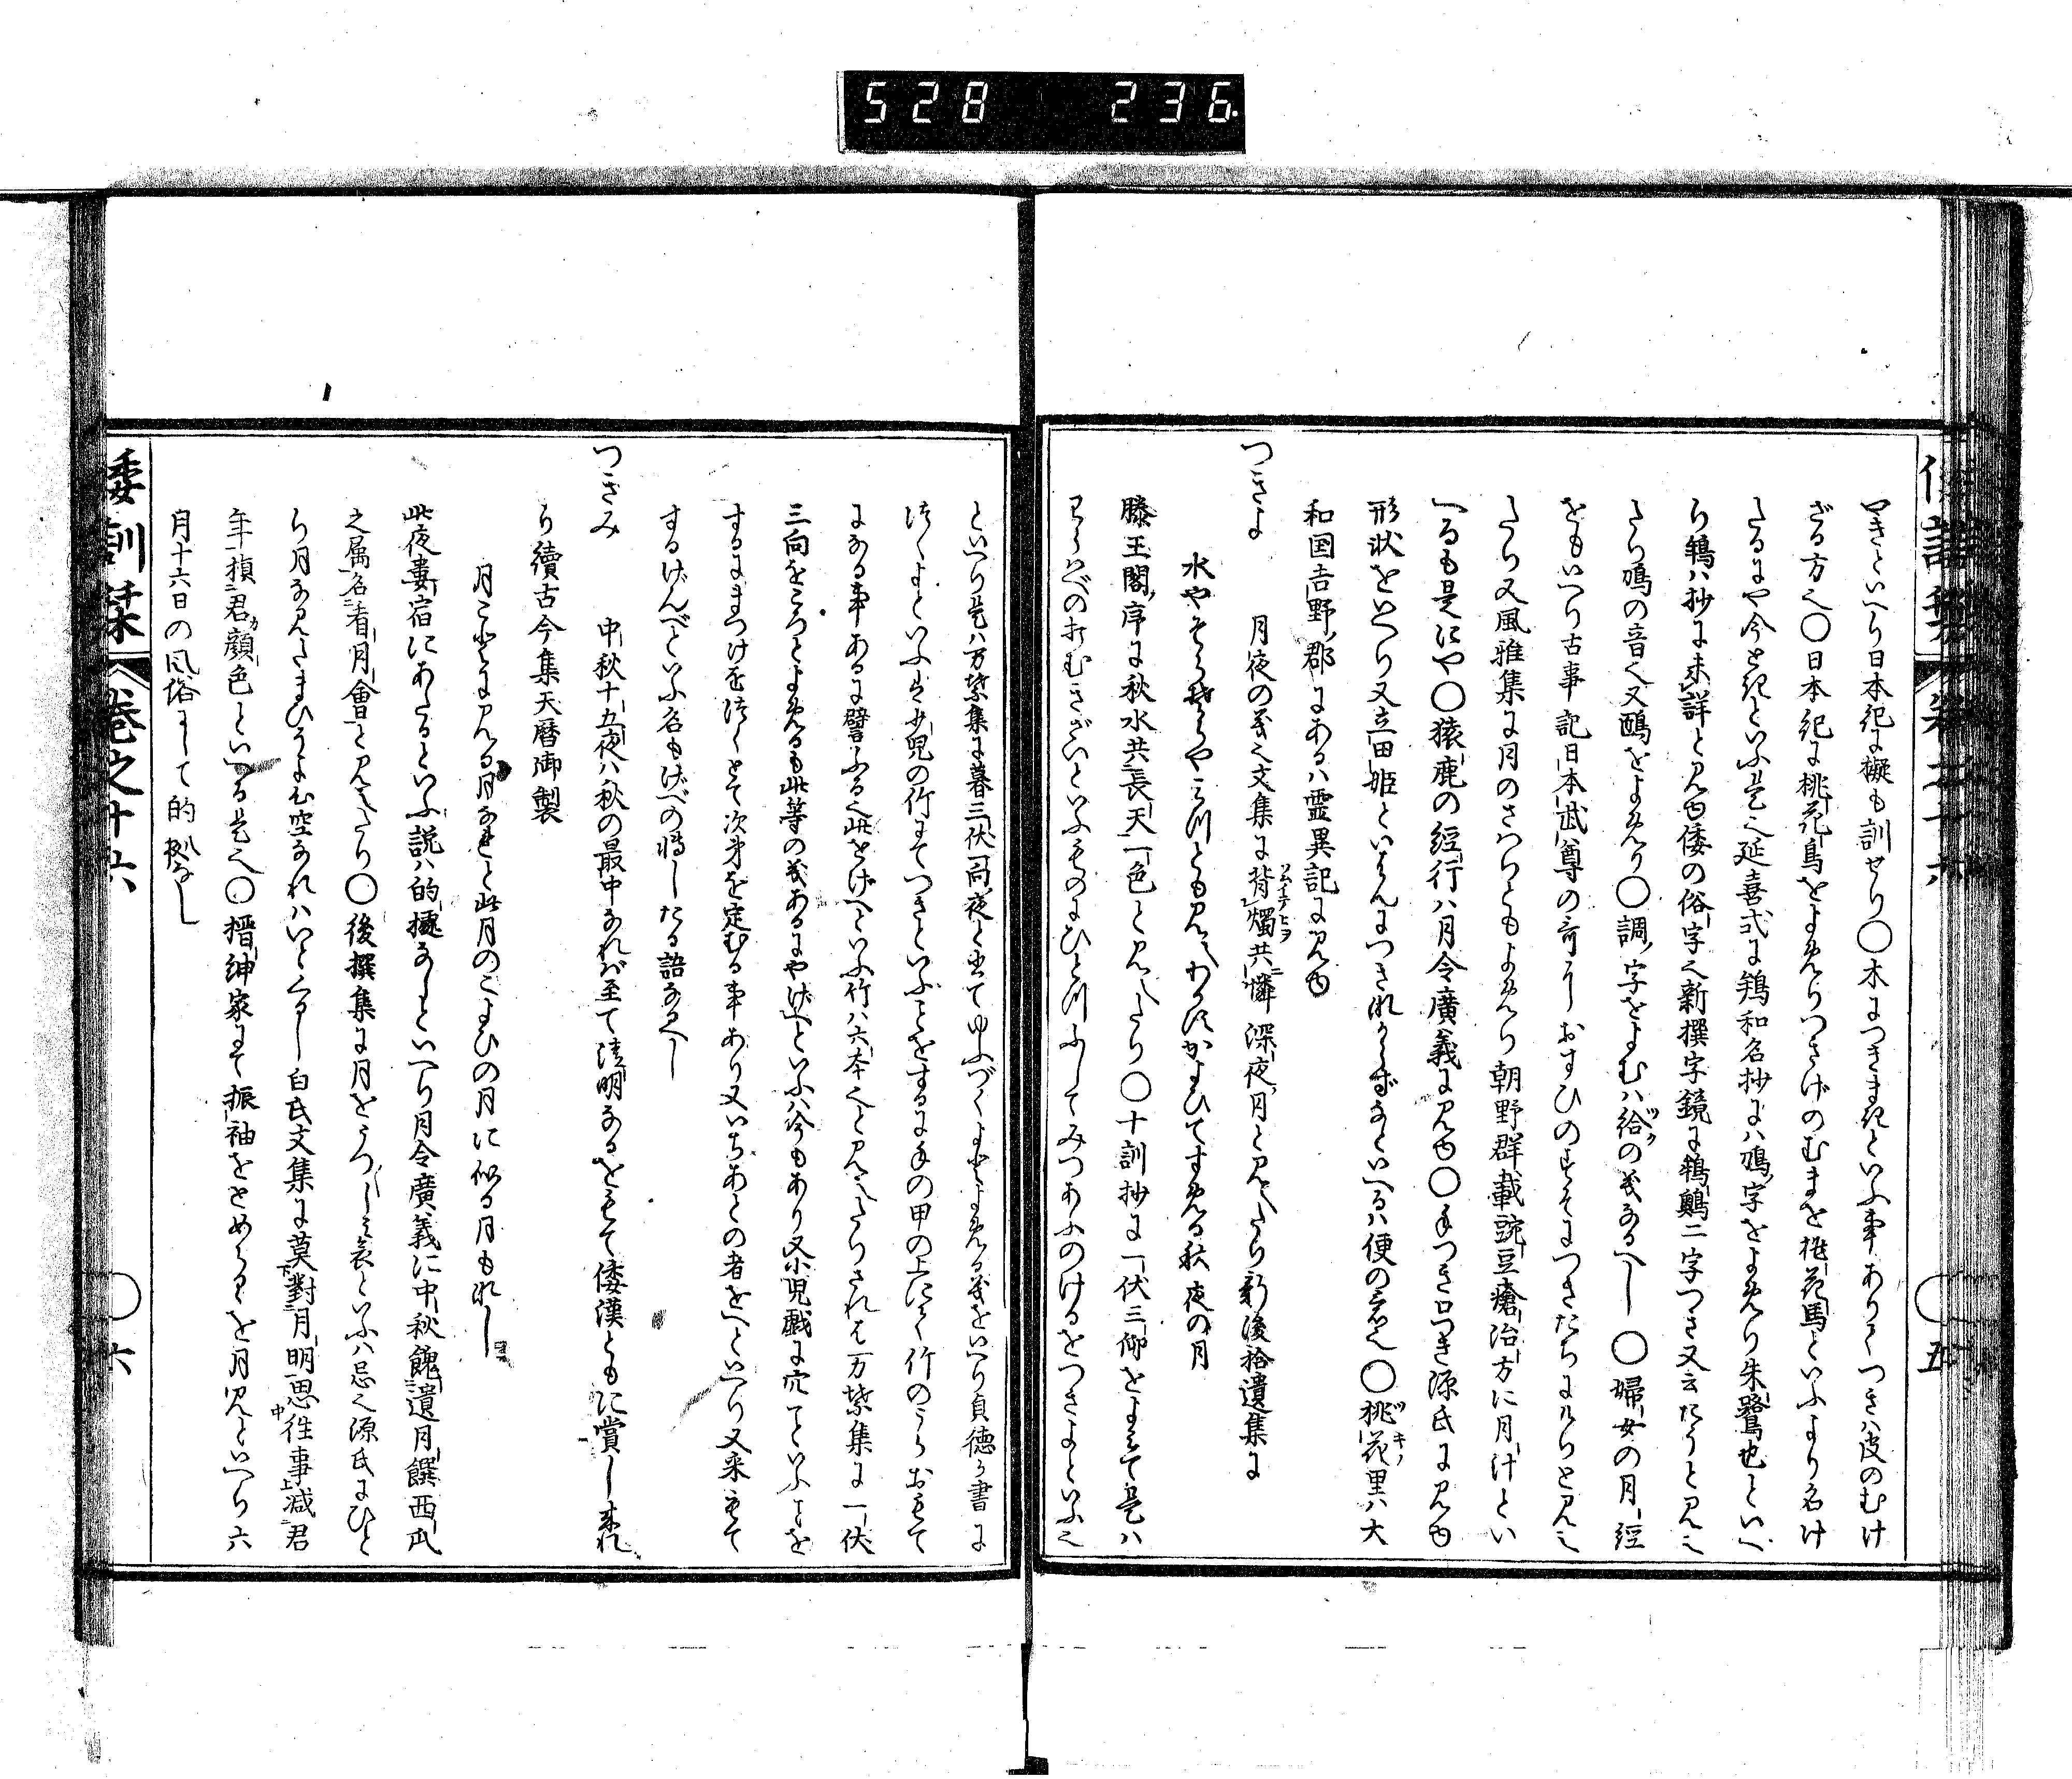 528 236
やきといへり日本紀に擬も訓せり〇木につきまきといふ事ありてつきは皮のむけ
ざる方也〇日本紀に桃花鳥をよめりつきげのむまを桃花馬といふより名け
たるにや今ときといふ是也延喜式に鵇和名抄には鴇字をよめり朱鷺也といへ
り鵇は抄に未詳と見ゆ倭の俗字也新撰字鏡に鵇 二字つき又云たうと見え
たり鴇の音也又 をよめり〇調ノ字をよむは給の義なるへし〇婦女の月経
をもいへり古事記日本武尊の哥におすひのすそにつきたちにけりと見え
たり又風雅集に月のさはりともよめり朝野群載豌豆瘡治方に月汁とい
へるも是にや〇猿鹿の経行は月令廣義に見ゆ〇手つき口つき源氏に見ゆ
形状をいへり又立田姫といはんにつきなからずなといへるは便の意也〇桃花里は大
和国吉野ノ郡にあるは霊異記に見ゆ
つきよ 月夜の義也文集に背燭共憐深夜ノ月と見えたり新後拾遺集に
水やそらそらや水ともみえわかすかよひてすめる秋夜の月
滕王閣ノ序に秋水共長天一色と見えたり〇十訓抄に一伏三仰をよみて是は
わらはべの打むきざいといふものにひとつふしてみつあふのけるをつきよといふ也
といへり是は万葉集に暮三伏一向夜と書てゆふづくよとよめる義をいへり貞徳か書に
つくよといふは少児の竹にてつきといふことをするに手の甲の上につく竹のうらおもて
になる事あるに譬ふる也此をけへといふ竹は六本也と見えたりされは万葉集に一伏
三向をころとよめるも此等の義あるにやけへといふは今もあり又小児戯に穴てといふことを
するにまつけをつくとて次第を定むる事あり又いちあとの者をへといへり又采もて
するけんべといふ名もけべの轉したる語なるへし
つきみ 中秋十五夜は秋の最中なれば至て清明なるをもて倭漢ともに賞し来れ
り續古今集天暦御製
月ことにみる月なれと此月のこよひの月に似る月もなし
此夜婁宿にあたるといふ説は的據なしといへり月令廣義に中秋餽遺月饌西瓜
之属名看月會と見えたり〇後撰集に月をうつしみ哀といふは忌也源氏にひと
り月な見たまひそよも空なれはいとくるし白氏文集に莫對月明思往事減君
年損君顔色といへる是也〇搢紳家にて振袖をとめらるるを月見といへり六
月十六日の風俗にして的據なし
倭訓栞 巻之十六 〇六